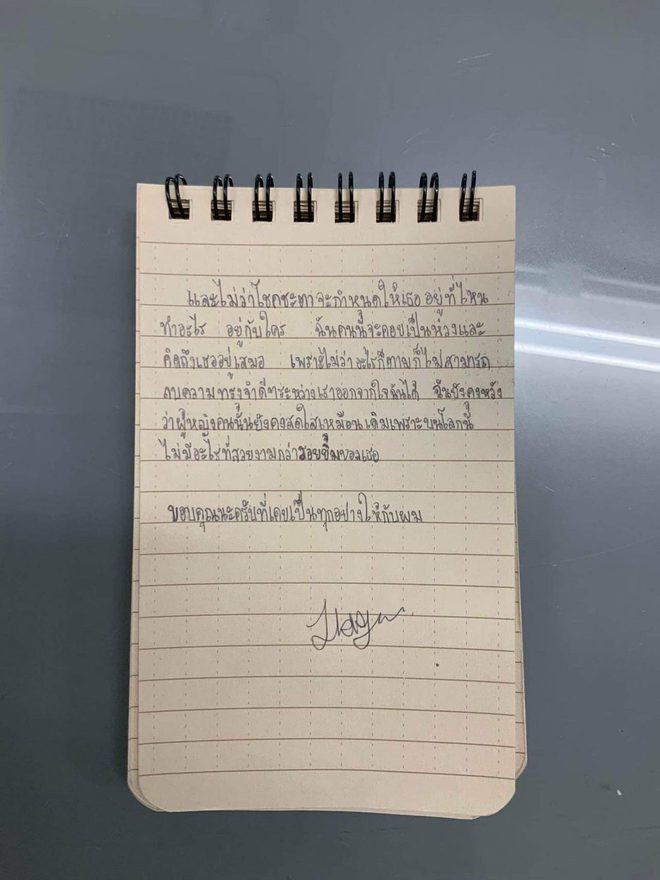 และไม่ว่าโชคชะตาจะกำหนดให้เธออยู่ที่ไหน
ทำอะไร อยู่กับใคร ฉันคนนี้จะคอยเป็นห่วงและ
คิดถึงเธออยู่เสมอ เพราะไม่ว่าอะไรก็ตามก็ไม่สามารถ
ลบความทรงจำดีๆระหว่างเราออกจากใจฉันได้ ฉันยังคงหวัง
ว่าผู้หญิงคนนั้นยังคงสดใสเหมือนเดิมเพราะบนโลกนี้
ไม่มีอะไรที่สวยงามกว่ารอยยิ้มของเธอ
ขอบคุณนะครับที่เคยเป็นทุกอย่างให้กับผม